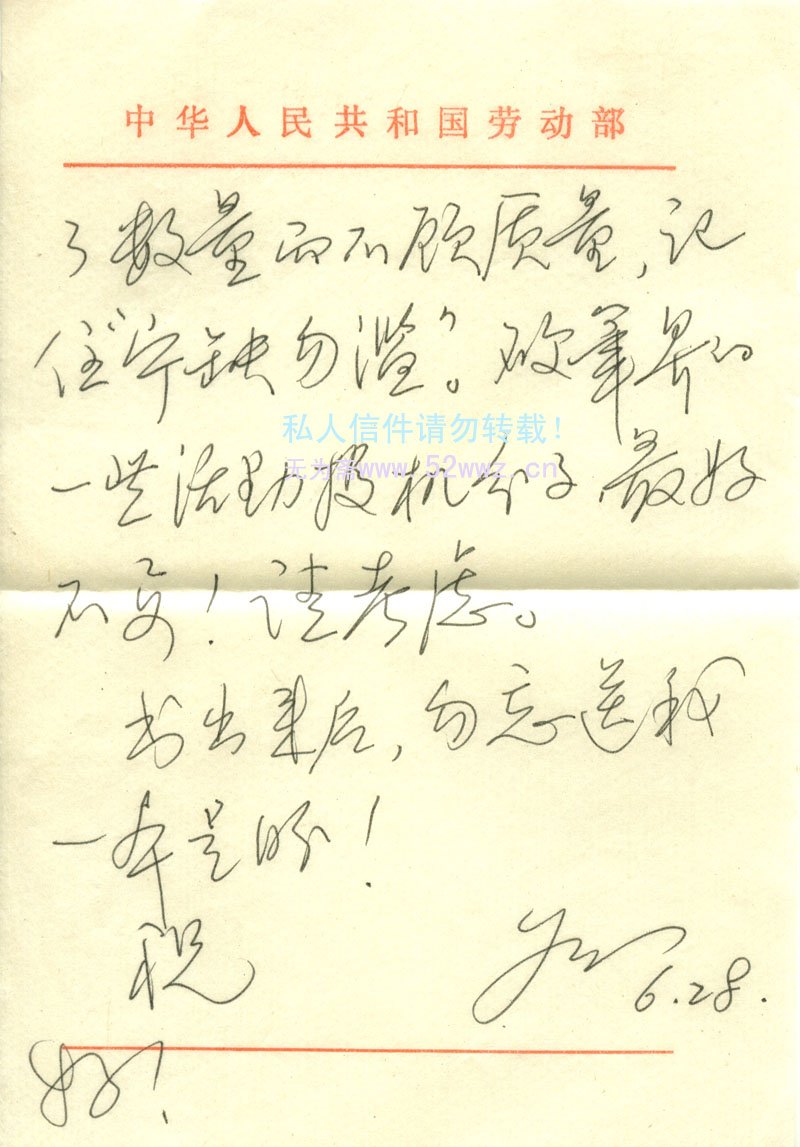 中华人民共和国劳动部
了数量而不顾质量，记
住“宁缺勿滥”。硬笔界的
私人信件请勿转载！
一些活动投机分子，最好
无为斋www.52wwz.cn
不交！请考虑。
书出来后，勿忘送我
一本是盼！
祝
6.28.
好！